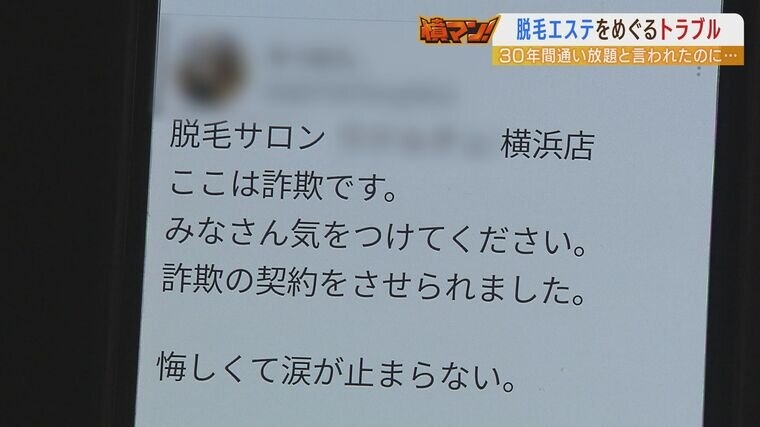 憤マン!
脱毛エステをめぐるトラブル
30年間通い放題と言われたのに…
脱毛サロン 横浜店
ここは詐欺です。
みなさん気をつけてください。
詐欺の契約をさせられました。
悔しくて涙が止まらない。